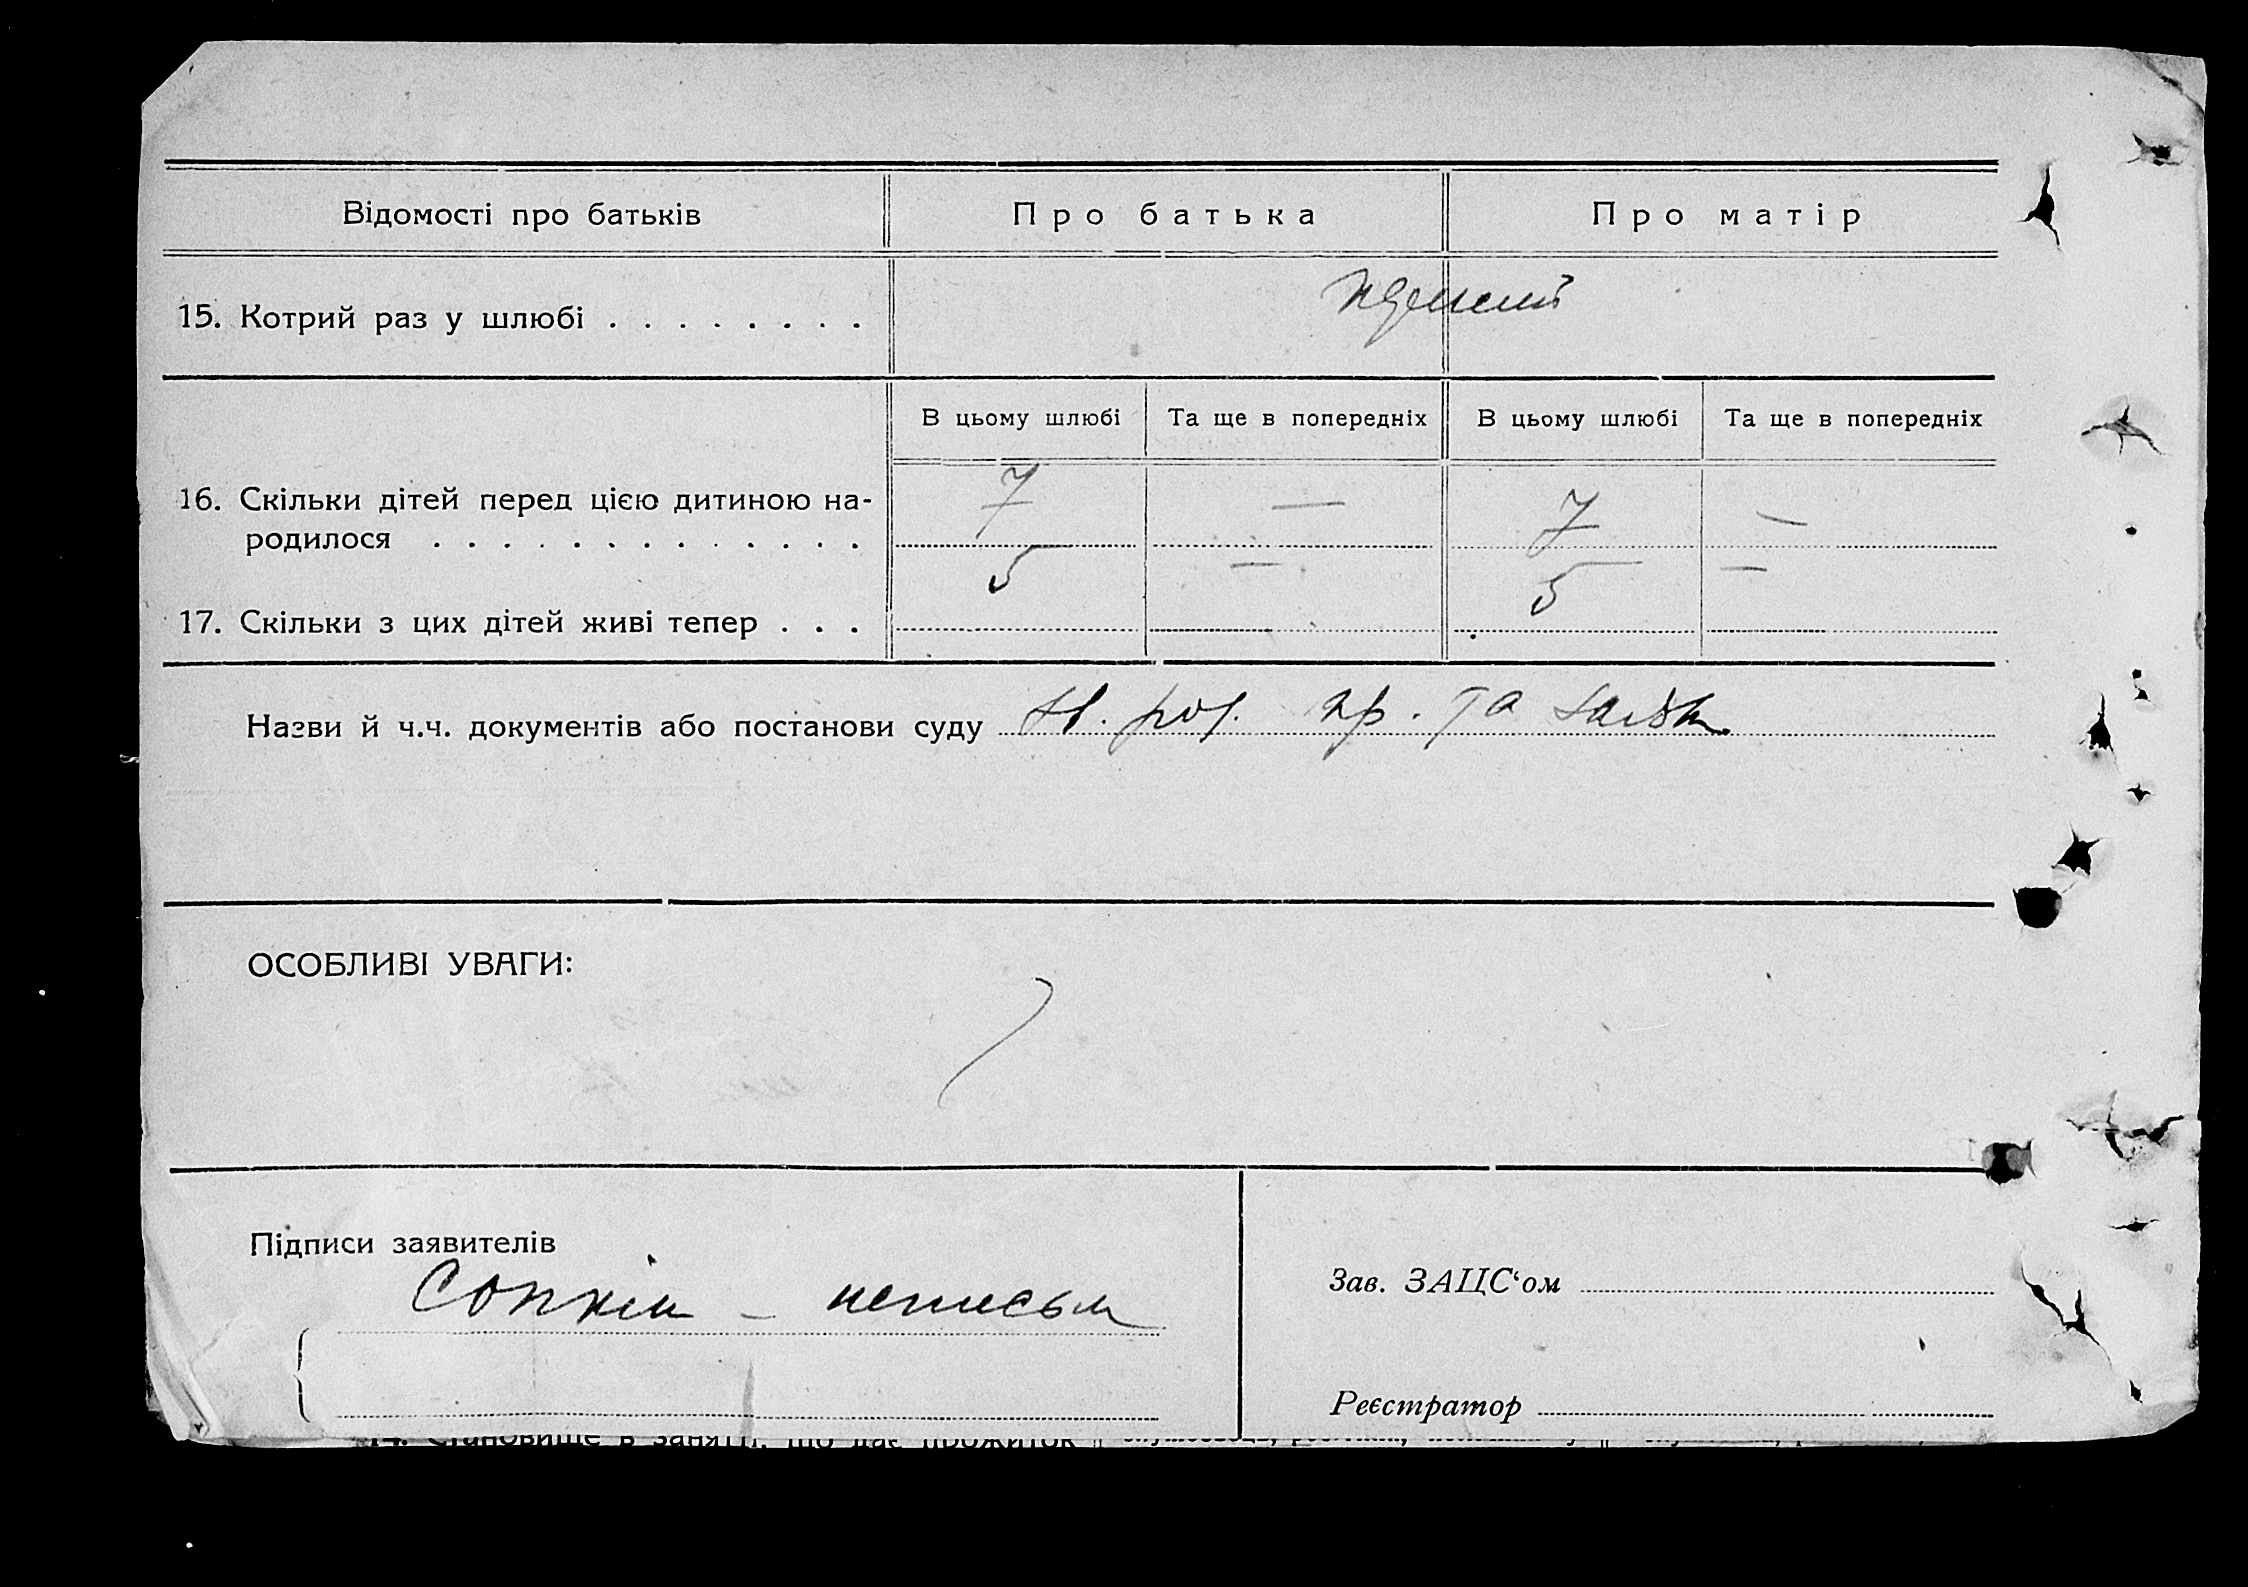 Відомості про батьків
Про батька
Про матір
15. Котрий раз у шлюбі . . . . . . . .
В цьому шлюбі
Та ще в попередніх
В цьому шлюбі
Та ще в попередніх
16. Скільки дітей перед цією дитиною на-
родилося . . . . . . . . . . . . .
7 — 7 —
17. Скільки з цих дітей живі тепер . . .
5 — 5 —
Назви й ч.ч. документів або постанови суду
та
ОСОБЛИВІ УВАГИ:
Підписи заявителів
Зав. ЗАЦС‘ом
Реєстратор
14. Становище в занятті, що дає прожиток